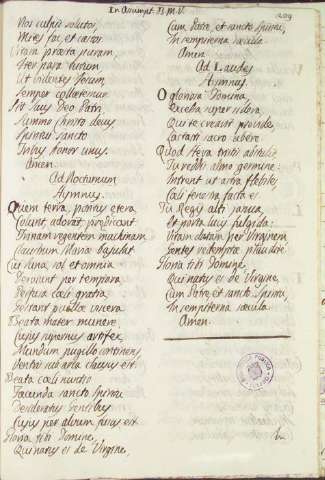 In Assumpt. B. M. V.
209
Nos culpis solutos,
Mites fac, et castos.
Vitam præsta puram,
Iter para tutum
Ut videntes Jesum,
Semper collætemur.
Sit laus Deo Patri,
Summo Christo decus,
Spiritui Sancto
Tribus honor unus.
Amen.
Ad Nocturnum
Hymnus.
Quem terra, pontus, etera
Colunt, adorant, prædicant
Trinam regentem machinam
Claustrum Mariæ bajulat
Cui luna, sol, et omnia
Deserviunt per tempora
Perfusa cœli gratia
Gestant puellæ viscera
Beata Mater munere
Cujus supernus artifex
Mundum pugillo continens
Ventris sub arca clausus est.
Beata cœli nuntio
Fœcunda sancto Spiritu
Desideratus gentibus
Cujus per alvum fusus est.
Gloria tibi Domine,
Qui natus es de Virgine,
Cum Patre, et sancto Spiritu,
In sempiterna sæcula
Amen
Ad Laudes
Hymnus.
O gloriosa Domina,
Excelsa super sidera
Qui te creavit provide,
Lactasti sacro ubere
Quod Heva tristis abstulit
Tu reddis almo germine:
Intrent ut astra flebiles
Cœli fenestra facta es.
Tu Regis alti janua,
Et porta lucis fulgida:
Vitam datam per Virginem
Gentes redemptæ plaudite.
Gloria tibi Domine,
Qui natus es de Virgine,
Cum Patre, et sancto Spiritu,
In sempiterna sæcula.
Amen.